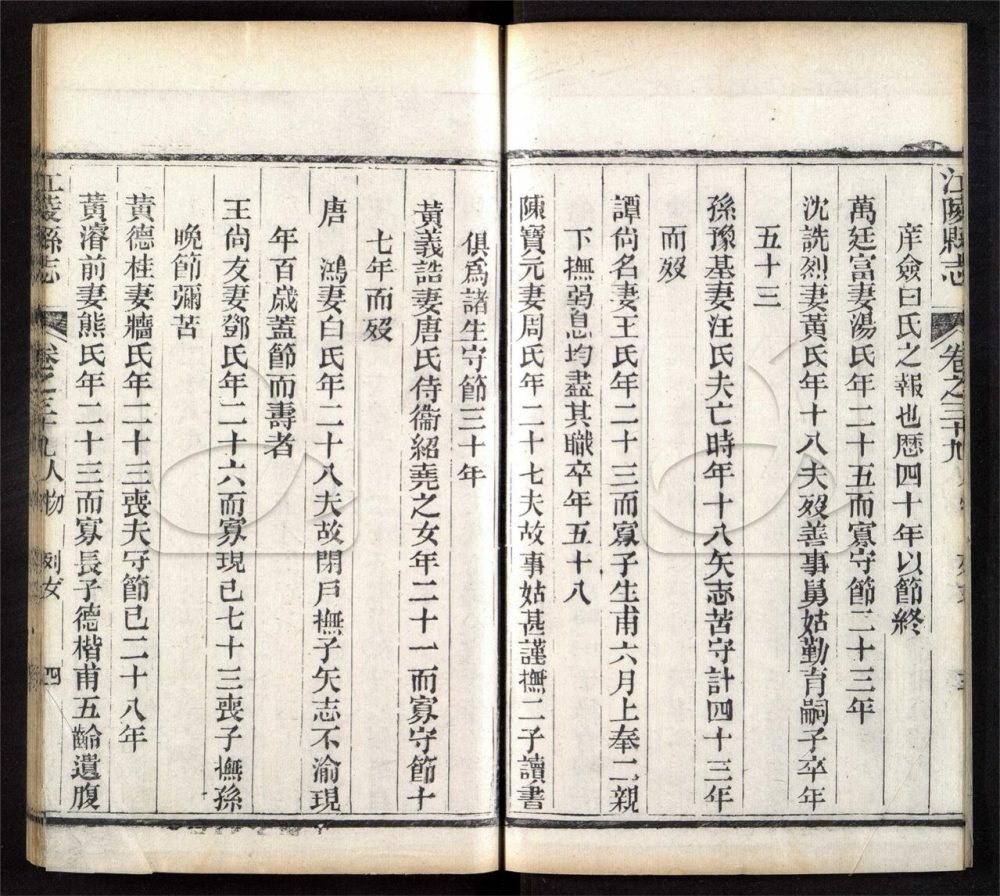 江陵縣志 卷之三十九
庠僉曰氏之報也歷四十年以節終
萬廷富妻湯氏年二十五而寡守節二十三年
沈詵烈妻黃氏年十八夫歿善事舅姑勤育嗣子卒年
五十三
孫豫基妻汪氏夫亡時年十八矢志苦守計四十三年
而歿
譚尙名妻王氏年二十三而寡子生甫六月上奉二親
下撫弱息均盡其職卒年五十八
陳寶元妻周氏年二十七夫故事姑甚謹撫二子讀書
俱爲諸生守節三十年
黃義誥妻唐氏侍衞紹堯之女年二十一而寡守節十
七年而歿
唐 鴻妻白氏年二十八夫故閉戶撫子矢志不渝現
年百歲蓋節而壽者
王尙友妻鄧氏年二十六而寡現已七十三喪子撫孫
晚節彌苦
黃德桂妻牆氏年二十三喪夫守節已二十八年
黃濬前妻熊氏年二十三而寡長子德楷甫五齡遺腹
江陵縣志 卷之三十九 人物 列女 四